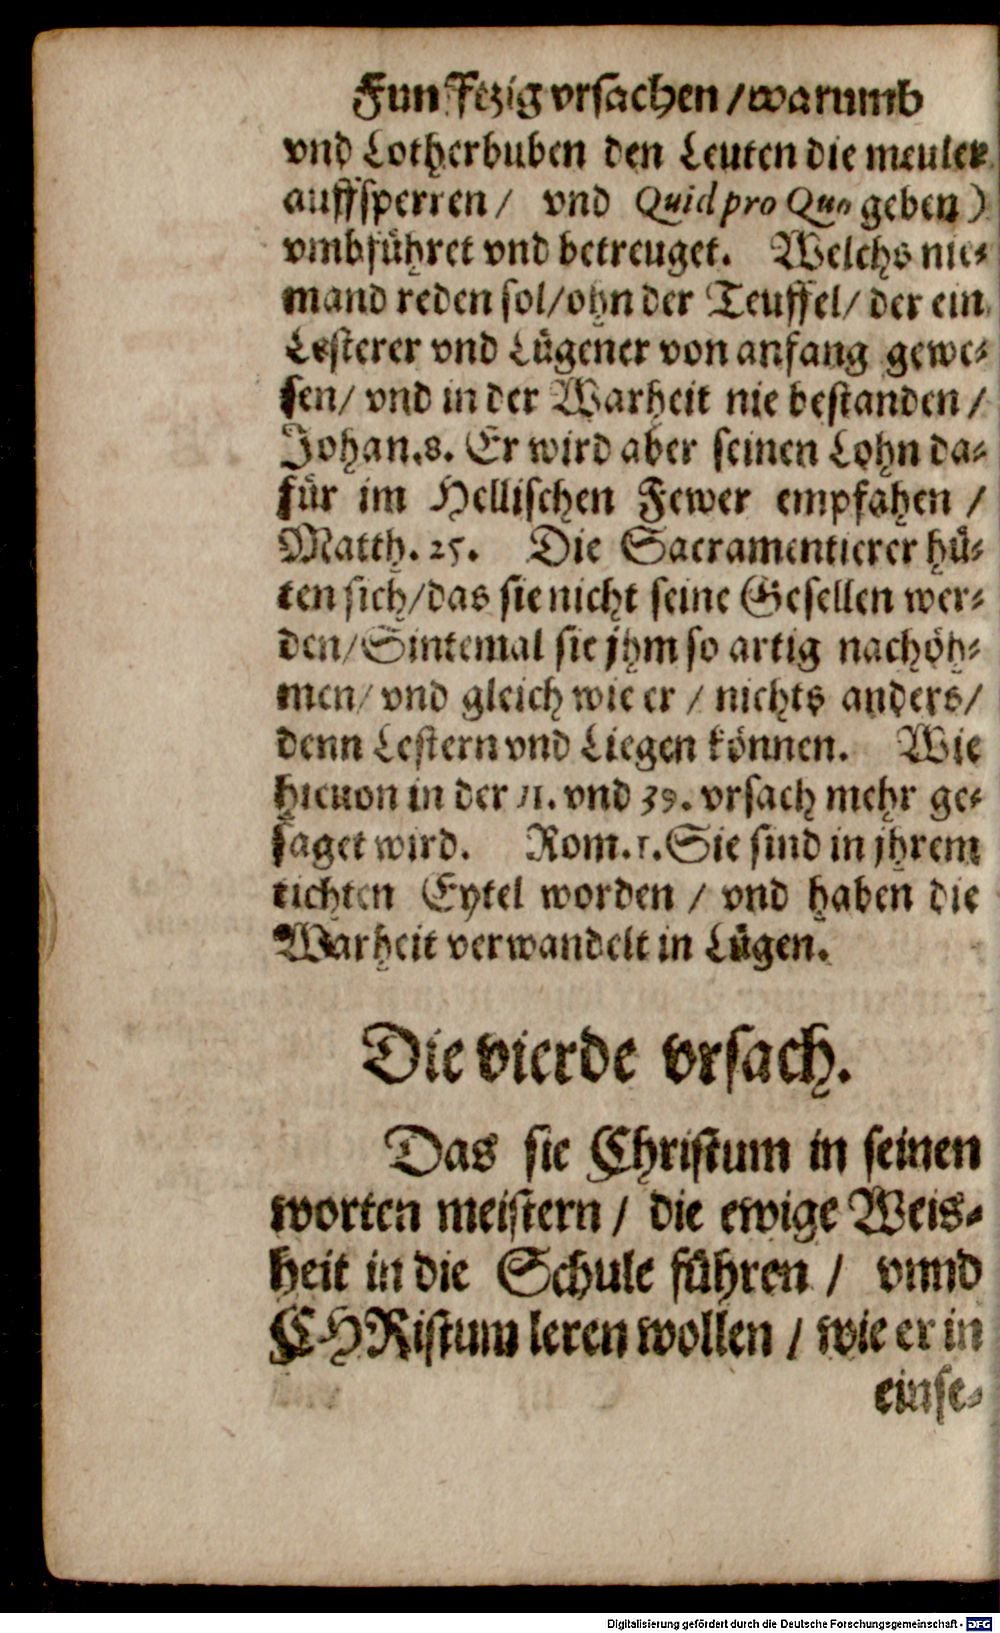 Funfftzig vrsachen / warumb
vnd Lotherbuben den Leuten die meuler
auffsperren / vnd Quid pro Quo geben)
vmbführet vnd betreuget. Welchs nie-
mand reden sol / ohn der Teuffel / der ein
Lesterer vnd Lügener von anfang gewe-
sen / vnd in der Warheit nie bestanden /
Johan. 8. Er wird aber seinen Lohn da-
für im Hellischen Fewer empfahen /
Matth. 25. Die Sacramentierer hü-
ten sich / das sie nicht seine Gesellen wer-
den / Sintemal sie jhm so artig nachöh-
men / vnd gleich wie er / nichts anders /
denn Lestern vnd Liegen können. Wie
hieuon in der 11. vnd 39. vrsach mehr ge-
saget wird. Rom. 1. Sie sind in jhrem
tichten Eytel worden / vnd haben die
Warheit verwandelt in Lügen.
Die vierde vrsach.
Das sie Christum in seinen
worten meistern / die ewige Weis-
heit in die Schule führen / vnnd
CHRistum leren wollen / wie er in
einse-
Digitalisierung gefördert durch die Deutsche Forschungsgemeinschaft - DFG